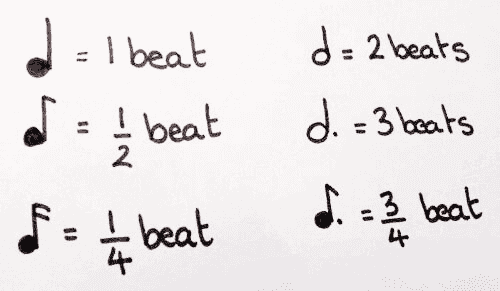 ♩ = 1 beat
♪ = 1/2 beat
𝅘𝅥𝅯 = 1/4 beat
𝅗𝅥 = 2 beats
𝅗𝅥. = 3 beats
♪. = 3/4 beat